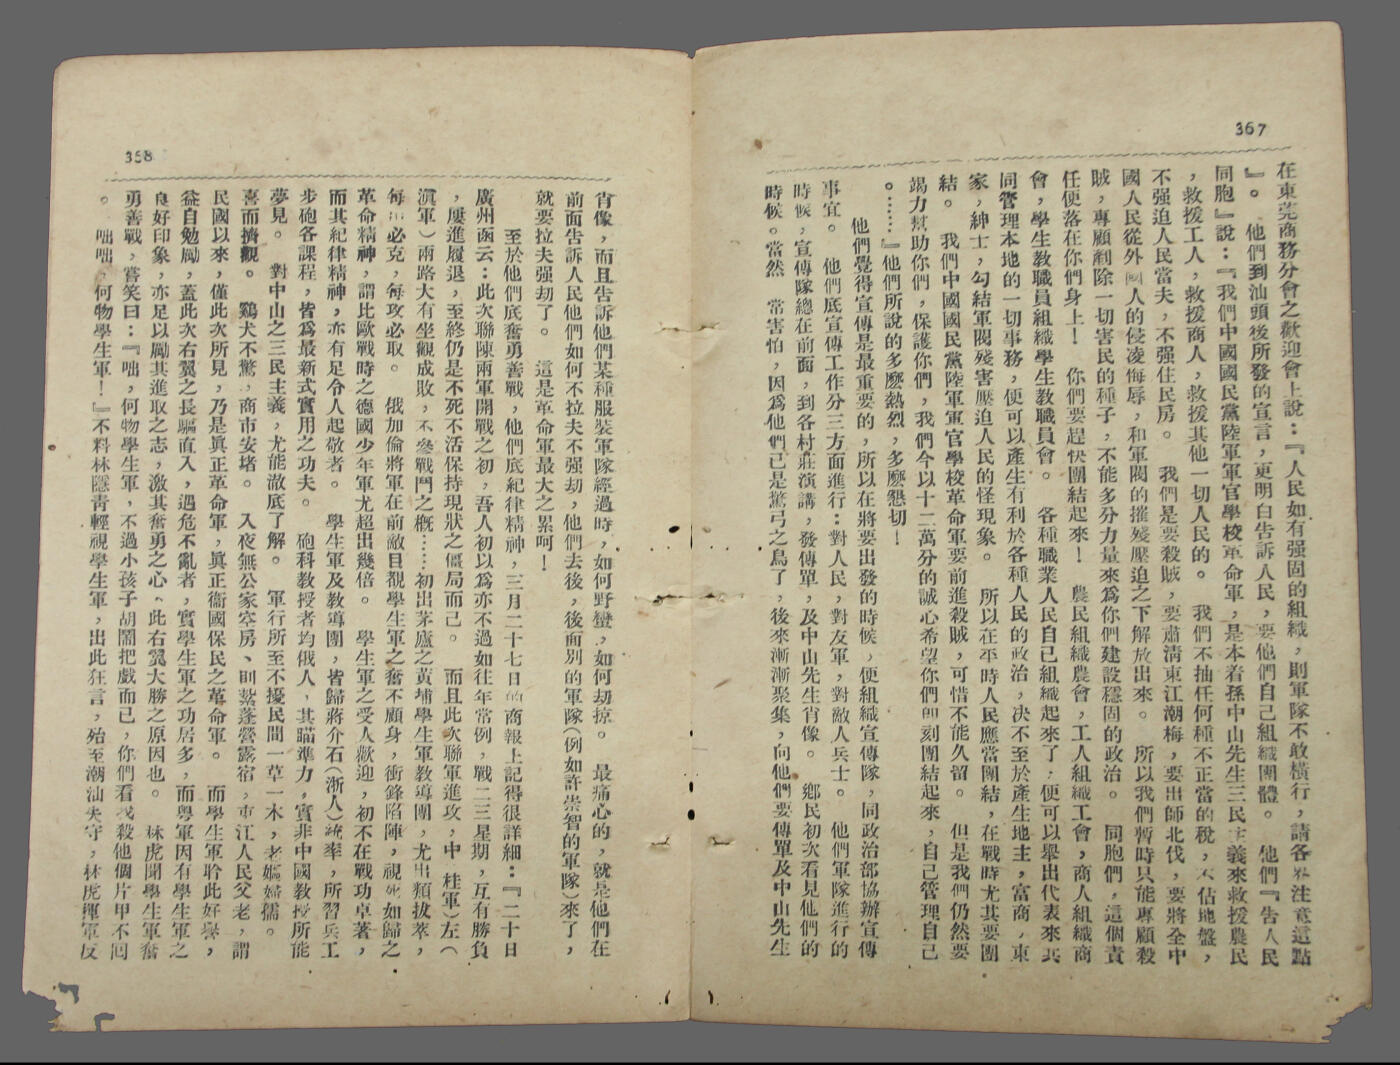 367
在東莞商務分會之歡迎會上說：『人民如有强固的組織，則軍隊不敢橫行，請各界注意這點
』。　他們到汕頭後所發的宣言，更明白告訴人民，要他們自己組織團體。　他們『告人民
同胞』說：『我們中國國民黨陸軍軍官學校革命軍，是本着孫中山先生三民主義來救援農民
，救援工人，救援商人，救援其他一切人民的。　我們不抽任何種不正當的稅，不佔地盤，
不强迫人民當夫，不强住民房。　我們是要殺賊，要肅清東江潮梅，要出師北伐，要將全中
國人民從外國人的侵凌悔辱，和軍閥的摧殘壓迫之下解放出來。　所以我們暫時只能專顧殺
賊，專顧剷除一切害民的種子，不能多分力量來爲你們建設穩固的政治。　同胞們，這個責
任便落在你們身上！　你們要趕快團結起來！　農民組織農會，工人組織工會，商人組織商
會，學生教職員組織學生教職員會。　各種職業人民自己組織起來了，便可以舉出代表來共
同管理本地的一切事務，便可以產生有利於各種人民的政治，决不至於產生地主，富商，東
家，紳士，勾結軍閥殘害壓迫人民的怪現象。　所以在平時人民應當團結，在戰時尤其要團
結。　我們中國國民黨陸軍軍官學校革命軍要前進殺賊，可惜不能久留。　但是我們仍然要
竭力幫助你們，保護你們，我們今以十二萬分的誠心希望你們卽刻團結起來，自己管理自己
。……』他們所說的多麽熱烈，多麽懇切！
他們覺得宣傳是最重要的，所以在將要出發的時候，便組織宣傳隊，同政治部協辦宣傳
事宜。　他們底宣傳工作分三方面進行：對人民，對友軍，對敵人兵士。　他們軍隊進行的
時候，宣傳隊總在前面，到各村莊演講，發傳單，及中山先生肖像。　鄉民初次看見他們的
時候。當然　常害怕，因爲他們已是驚弓之鳥了，後來漸漸聚集，向他們要傳單及中山先生
358
肖像，而且告訴他們某種服裝軍隊經過時，如何野蠻，如何劫掠。　最痛心的，就是他們在
前面告訴人民他們如何不拉夫不强劫，他們去後，後面別的軍隊（例如許崇智的軍隊）來了，
就要拉夫强劫了。　這是革命軍最大之累呵！
至於他們底奮勇善戰，他們底紀律精神，三月二十七日的商報上記得很詳細：『二十日
廣州函云：此次聯陳兩軍開戰之初，吾人初以爲亦不過如往年常例，戰二三星期，互有勝負
，屢進履退，至終仍是不死不活保持現狀之僵局而已。　而且此次聯軍進攻，中（桂軍）左（
滇軍）兩路大有坐觀成敗，不參戰鬥之槪……初出茅廬之黃埔學生軍敎導團，尤出類拔萃，
每　必克，每攻必取。　俄加倫將軍在前敵目覩學生軍之奮不顧身，衝鋒陷陣，視死如歸之
革命精神，謂比歐戰時之德國少年軍尤超出幾倍。　學生軍之受人歡迎，初不在戰功卓著，
而其紀律精神，亦有足令人起敬者。　學生軍及敎導團，皆歸蔣介石（浙人）統率，所習兵工
步砲各課程，皆爲最新式實用之功夫。　砲科敎授者均俄人，其瞄準力，實非中國敎授所能
夢見。　對中山之三民主義，尤能澈底了解。　軍行所至不擾民間一草一木，老嫗婦孺。
喜而擠觀。　鷄犬不驚，商市安堵。　入夜無公家空房，則紮蓬營露宿，東江人民父老，謂
民國以來，僅此次所見，乃是眞正革命軍，眞正衞國保民之革命軍。　而學生軍聆此好譽，
益自勉勵，蓋此次右翼之長驅直入，遇危不亂者，實學生軍之功居多，而粤軍因有學生軍之
良好印象，亦足以勵其進取之志，激其奮勇之心，此右翼大勝之原因也。　林虎聞學生軍奮
勇善戰，嘗笑曰：『咄，何物學生軍，不過小孩子胡鬧把戲而已，你們看我殺他個片甲不囘
。　咄咄，何物學生軍！』不料林隱靑輕視學生軍，出此狂言，殆至潮汕失守，林虎揮軍反